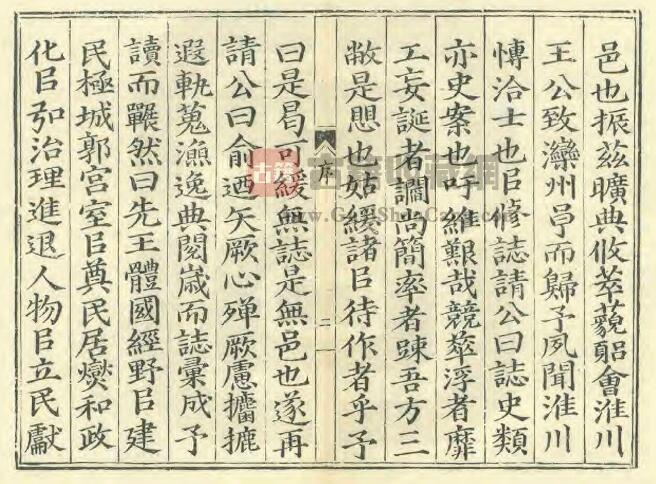 邑也振茲曠典攸萃藐躳會淮川
王公致灤州亭而歸予夙聞淮川
愽洽士也㠯修誌請公曰誌史類
亦史案也吁維艱哉競萃浮者靡
工妄誕者讕尚簡率者踈吾方三
敝是思也姑緩諸㠯待作者乎予
曰是曷可緩無誌是無邑也遂再
請公曰俞迺矢厥心殫厥慮攟摭
遐軌蒐漁逸典閱嵗而誌彙成予
讀而囅然曰先王體國經野㠯建
民極城郭宮室㠯奠民居爕和政
化㠯弘治理進退人物㠯立民獻
序
二
古籍